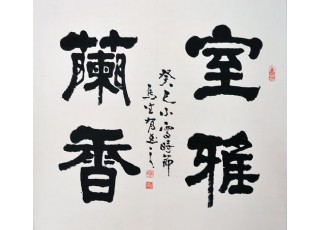 室雅
蘭香
癸巳小雪時節